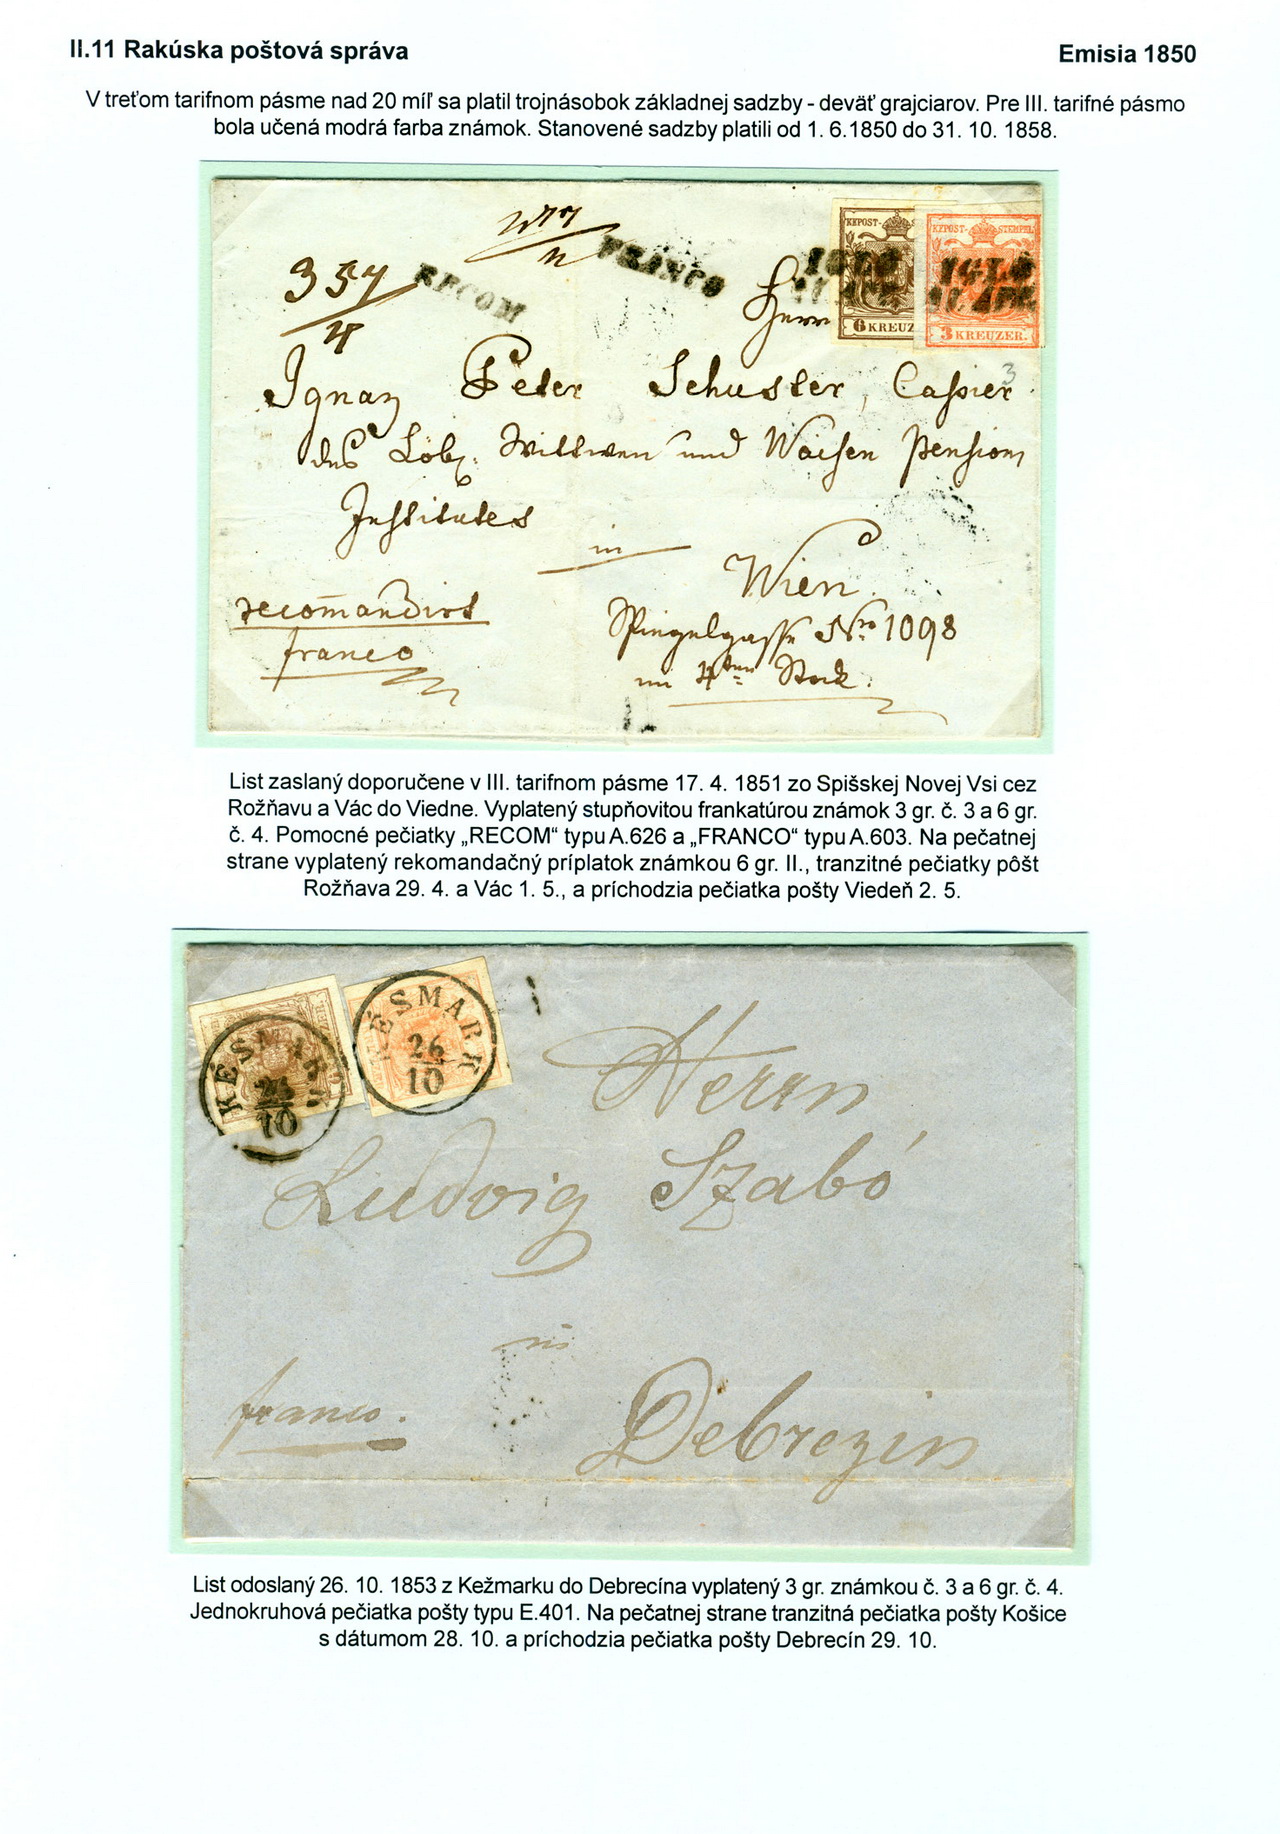 II.11 Rakúska poštová správa
Emisia 1850
V treťom tarifnom pásme nad 20 míľ sa platil trojnásobok základnej sadzby - deväť grajciarov. Pre III. tarifné pásmo
bola učená modrá farba známok. Stanovené sadzby platili od 1. 6.1850 do 31. 10. 1858.
357
4
RECOM
FRANCO
KKPOST-
6 KREUZ
KKPOST-STEMPEL
IGLO
17. APR.
3 KREUZER.
3
Herrn
Ignaz Peter Schuster, Cassier
des Löb. Wittwen und Waisen Pensions
Institutes
in
Wien.
recomandirt
Spiegelgasse Nro 1098
franco
im 4ten Stock.
List zaslaný doporučene v III. tarifnom pásme 17. 4. 1851 zo Spišskej Novej Vsi cez
Rožňavu a Vác do Viedne. Vyplatený stupňovitou frankatúrou známok 3 gr. č. 3 a 6 gr.
č. 4. Pomocné pečiatky „RECOM“ typu A.626 a „FRANCO“ typu A.603. Na pečatnej
strane vyplatený rekomandačný príplatok známkou 6 gr. II., tranzitné pečiatky pôšt
Rožňava 29. 4. a Vác 1. 5., a príchodzia pečiatka pošty Viedeň 2. 5.
KÉSMARK
26
10
KÉSMARK
26
10
Herrn
Ludvig Szabó
in
franco.
Debrezin
List odoslaný 26. 10. 1853 z Kežmarku do Debrecína vyplatený 3 gr. známkou č. 3 a 6 gr. č. 4.
Jednokruhová pečiatka pošty typu E.401. Na pečatnej strane tranzitná pečiatka pošty Košice
s dátumom 28. 10. a príchodzia pečiatka pošty Debrecín 29. 10.